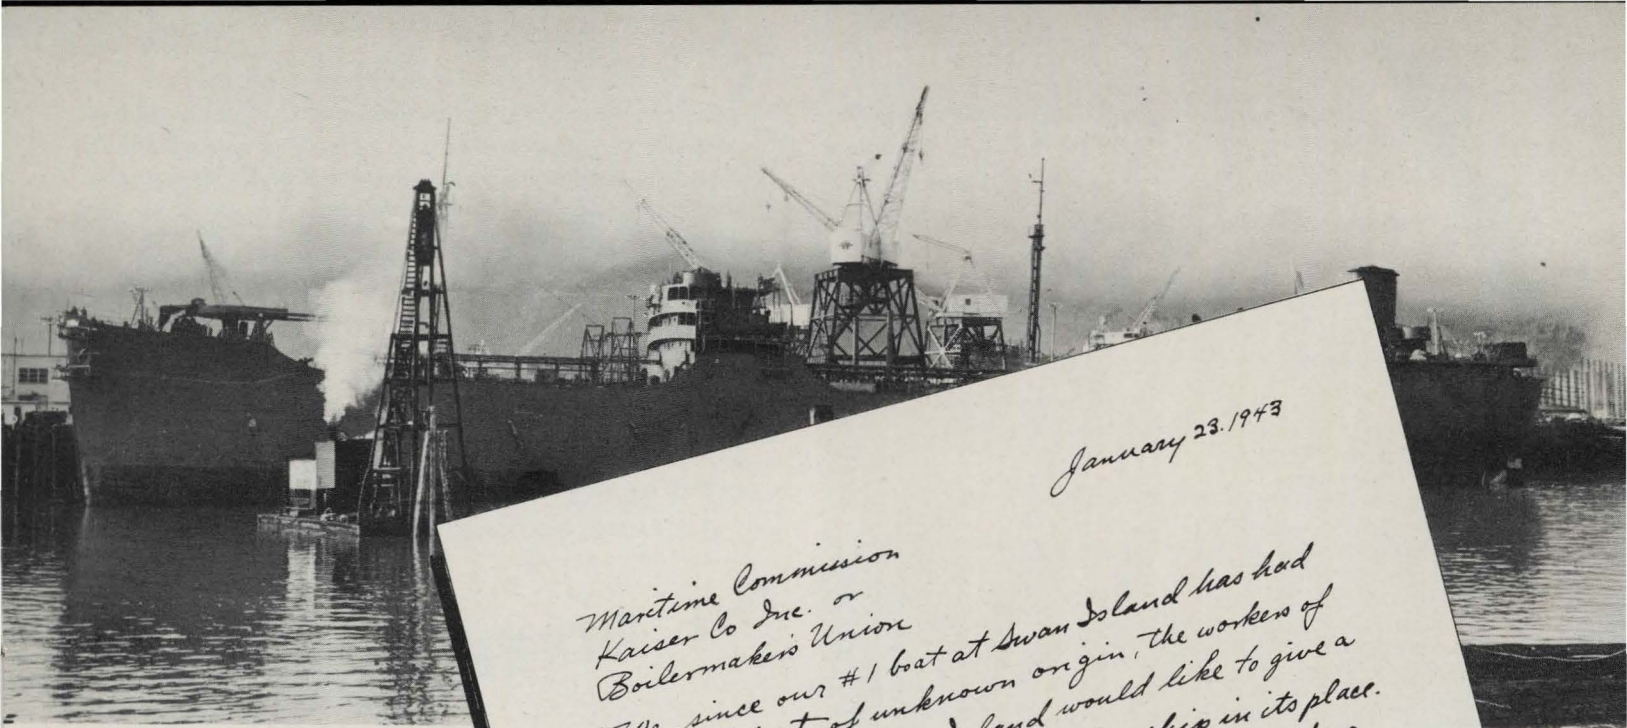 January 23. 1943
Maritime Commission
Kaiser Co Inc. or
Boilermakers Union
since our #1 boat at Swan Island has had
of unknown origin, the workers of
would like to give a
in its place.